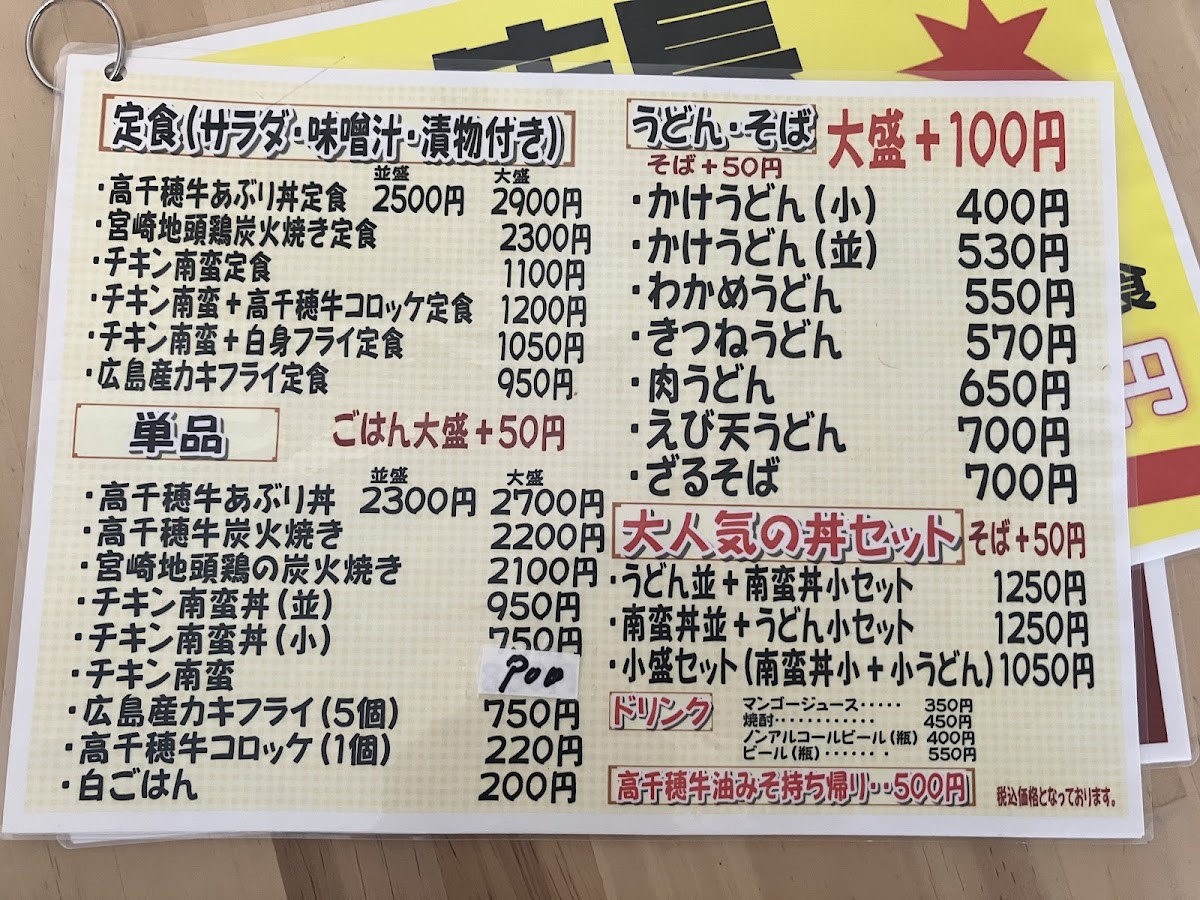 定食(サラダ・味噌汁・漬物付き)
並盛 大盛
・高千穂牛あぶり丼定食 2500円 2900円
・宮崎地頭鶏炭火焼き定食 2300円
・チキン南蛮定食 1100円
・チキン南蛮+高千穂牛コロッケ定食 1200円
・チキン南蛮+白身フライ定食 1050円
・広島産カキフライ定食 950円
単品 ごはん大盛+50円
並盛 大盛
・高千穂牛あぶり丼 2300円 2700円
・高千穂牛炭火焼き 2200円
・宮崎地頭鶏の炭火焼き 2100円
・チキン南蛮丼(並) 950円
・チキン南蛮丼(小) 750円
・チキン南蛮 900
・広島産カキフライ(5個) 750円
・高千穂牛コロッケ(1個) 220円
・白ごはん 200円
うどん・そば 大盛+100円
そば+50円
・かけうどん(小) 400円
・かけうどん(並) 530円
・わかめうどん 550円
・きつねうどん 570円
・肉うどん 650円
・えび天うどん 700円
・ざるそば 700円
大人気の丼セット そば+50円
・うどん並+南蛮丼小セット 1250円
・南蛮丼並+うどん小セット 1250円
・小盛セット(南蛮丼小+小うどん) 1050円
ドリンク
マンゴージュース‥‥‥ 350円
焼酎‥‥‥‥‥‥ 450円
ノンアルコールビール(瓶) 400円
ビール(瓶)‥‥‥‥ 550円
高千穂牛油みそ持ち帰り‥500円
税込価格となっております。
食
円